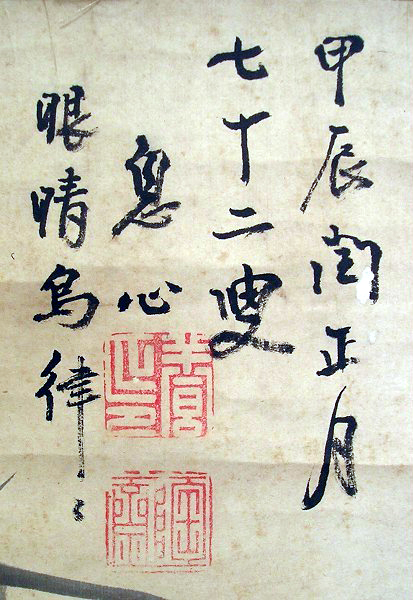 甲辰閏正月
七十二叟
息心
眼睛烏律〻